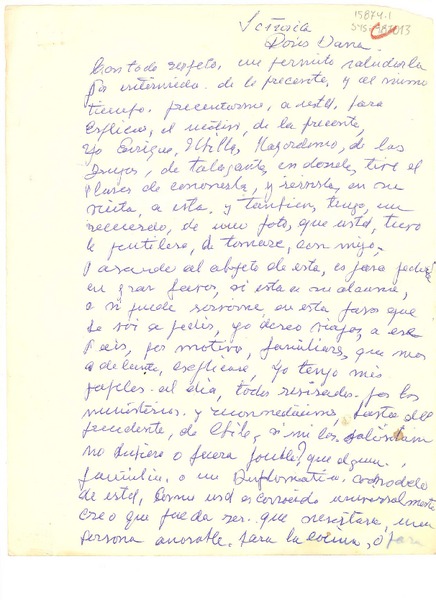 15874.1
Señorita
Doris Dana.
Con todo respeto, me permito saludarla
por intermedio. de la precente, y al mismo
tiempo. precentarme, a usted, para
esplicar, el motivo, de la precente,
Yo Enrique, Mayordomo, de las
de Talagante, en donde, tuve el
plaser de conoserla, y servirla, en su
visita, a esta. y tambien, tengo, un
recuerdo, de una foto, que usted, tuvo
la jentilesa, de tomarse, con migo,
Pasando al objeto de esta, es para pedirle
un gran favor, si esta a su alcance,
o si puede servirme, en esta favor que
le voi a pedir, yo deseo viajar, a ese
Pais, por motivo, familiares, que mas
adelante, esplicare, Yo tengo mis
papeles al dia, todos revisados por los
ministerios. y hasta del
precidente, de Chile, si me los
no pudiera o fuera posible, que alguna
familia. o un Diplomatico
de usted, como usd es conocida universalmente
creo que pueda ser. que nesesitara, una
persona onorable. para la cocina, o para